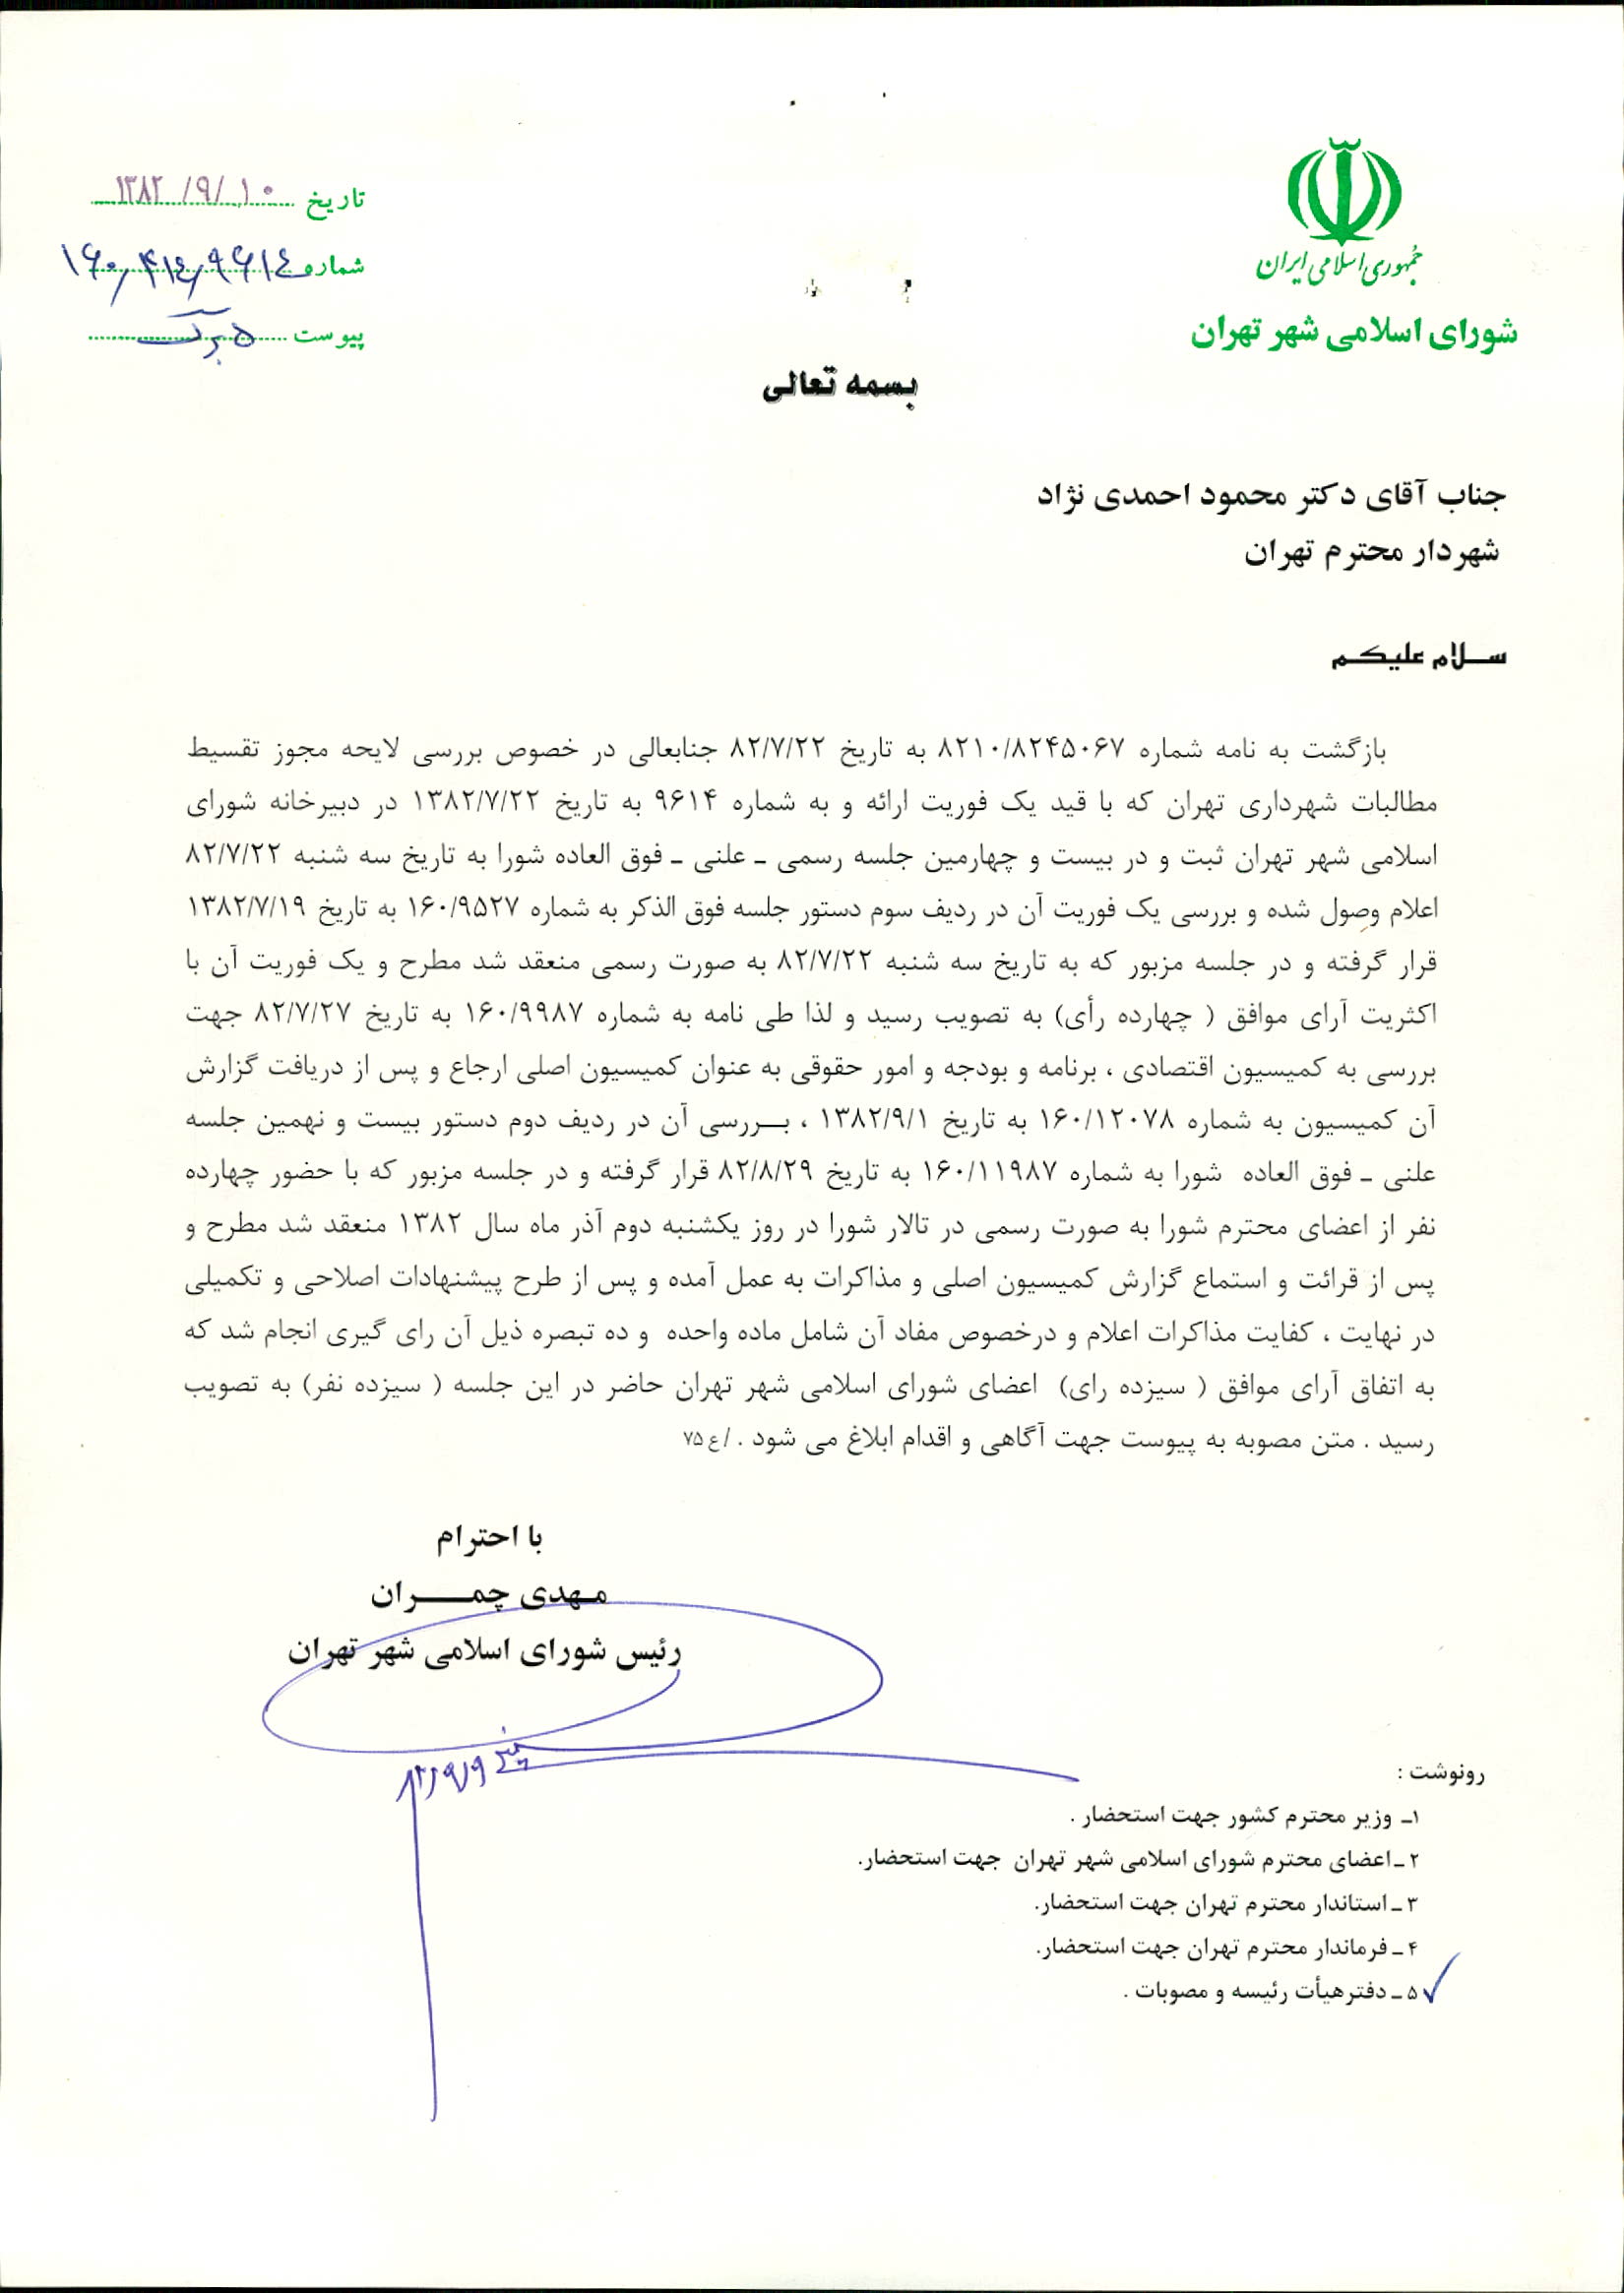 جمهوری اسلامی ایران
شورای اسلامی شهر تهران
تاریخ ۱۳۸۲/۹/۱۰
شماره ۱۶۰/۴۱۴/۹۶۱۴
پیوست ۵ برگ
بسمه تعالی
جناب آقای دکتر محمود احمدی نژاد
شهردار محترم تهران
سلام علیکم
بازگشت به نامه شماره ۸۲۱۰/۸۲۴۵۰۶۷ به تاریخ ۸۲/۷/۲۲ جنابعالی در خصوص بررسی لایحه مجوز تقسیط
مطالبات شهرداری تهران که با قید یک فوریت ارائه و به شماره ۹۶۱۴ به تاریخ ۱۳۸۲/۷/۲۲ در دبیرخانه شورای
اسلامی شهر تهران ثبت و در بیست و چهارمین جلسه رسمی ـ علنی ـ فوق العاده شورا به تاریخ سه شنبه ۸۲/۷/۲۲
اعلام وصول شده و بررسی یک فوریت آن در ردیف سوم دستور جلسه فوق الذکر به شماره ۱۶۰/۹۵۲۷ به تاریخ ۱۳۸۲/۷/۱۹
قرار گرفته و در جلسه مزبور که به تاریخ سه شنبه ۸۲/۷/۲۲ به صورت رسمی منعقد شد مطرح و یک فوریت آن با
اکثریت آرای موافق ( چهارده رأی) به تصویب رسید و لذا طی نامه به شماره ۱۶۰/۹۹۸۷ به تاریخ ۸۲/۷/۲۷ جهت
بررسی به کمیسیون اقتصادی ، برنامه و بودجه و امور حقوقی به عنوان کمیسیون اصلی ارجاع و پس از دریافت گزارش
آن کمیسیون به شماره ۱۶۰/۱۲۰۷۸ به تاریخ ۱۳۸۲/۹/۱ ، بــررسی آن در ردیف دوم دستور بیست و نهمین جلسه
علنی ـ فوق العاده شورا به شماره ۱۶۰/۱۱۹۸۷ به تاریخ ۸۲/۸/۲۹ قرار گرفته و در جلسه مزبور که با حضور چهارده
نفر از اعضای محترم شورا به صورت رسمی در تالار شورا در روز یکشنبه دوم آذر ماه سال ۱۳۸۲ منعقد شد مطرح و
پس از قرائت و استماع گزارش کمیسیون اصلی و مذاکرات به عمل آمده و پس از طرح پیشنهادات اصلاحی و تکمیلی
در نهایت ، کفایت مذاکرات اعلام و درخصوص مفاد آن شامل ماده واحده و ده تبصره ذیل آن رای گیری انجام شد که
به اتفاق آرای موافق ( سیزده رای) اعضای شورای اسلامی شهر تهران حاضر در این جلسه ( سیزده نفر) به تصویب
رسید . متن مصوبه به پیوست جهت آگاهی و اقدام ابلاغ می شود . /ع۷۵
با احترام
مـهدی چمــــران
رئیس شورای اسلامی شهر تهران
۸۲/۹/۹
رونوشت :
۱ـ وزیر محترم کشور جهت استحضار .
۲ ـ اعضای محترم شورای اسلامی شهر تهران جهت استحضار.
۳ ـ استاندار محترم تهران جهت استحضار.
۴ ـ فرماندار محترم تهران جهت استحضار.
۵ ـ دفترهیأت رئیسه و مصوبات .